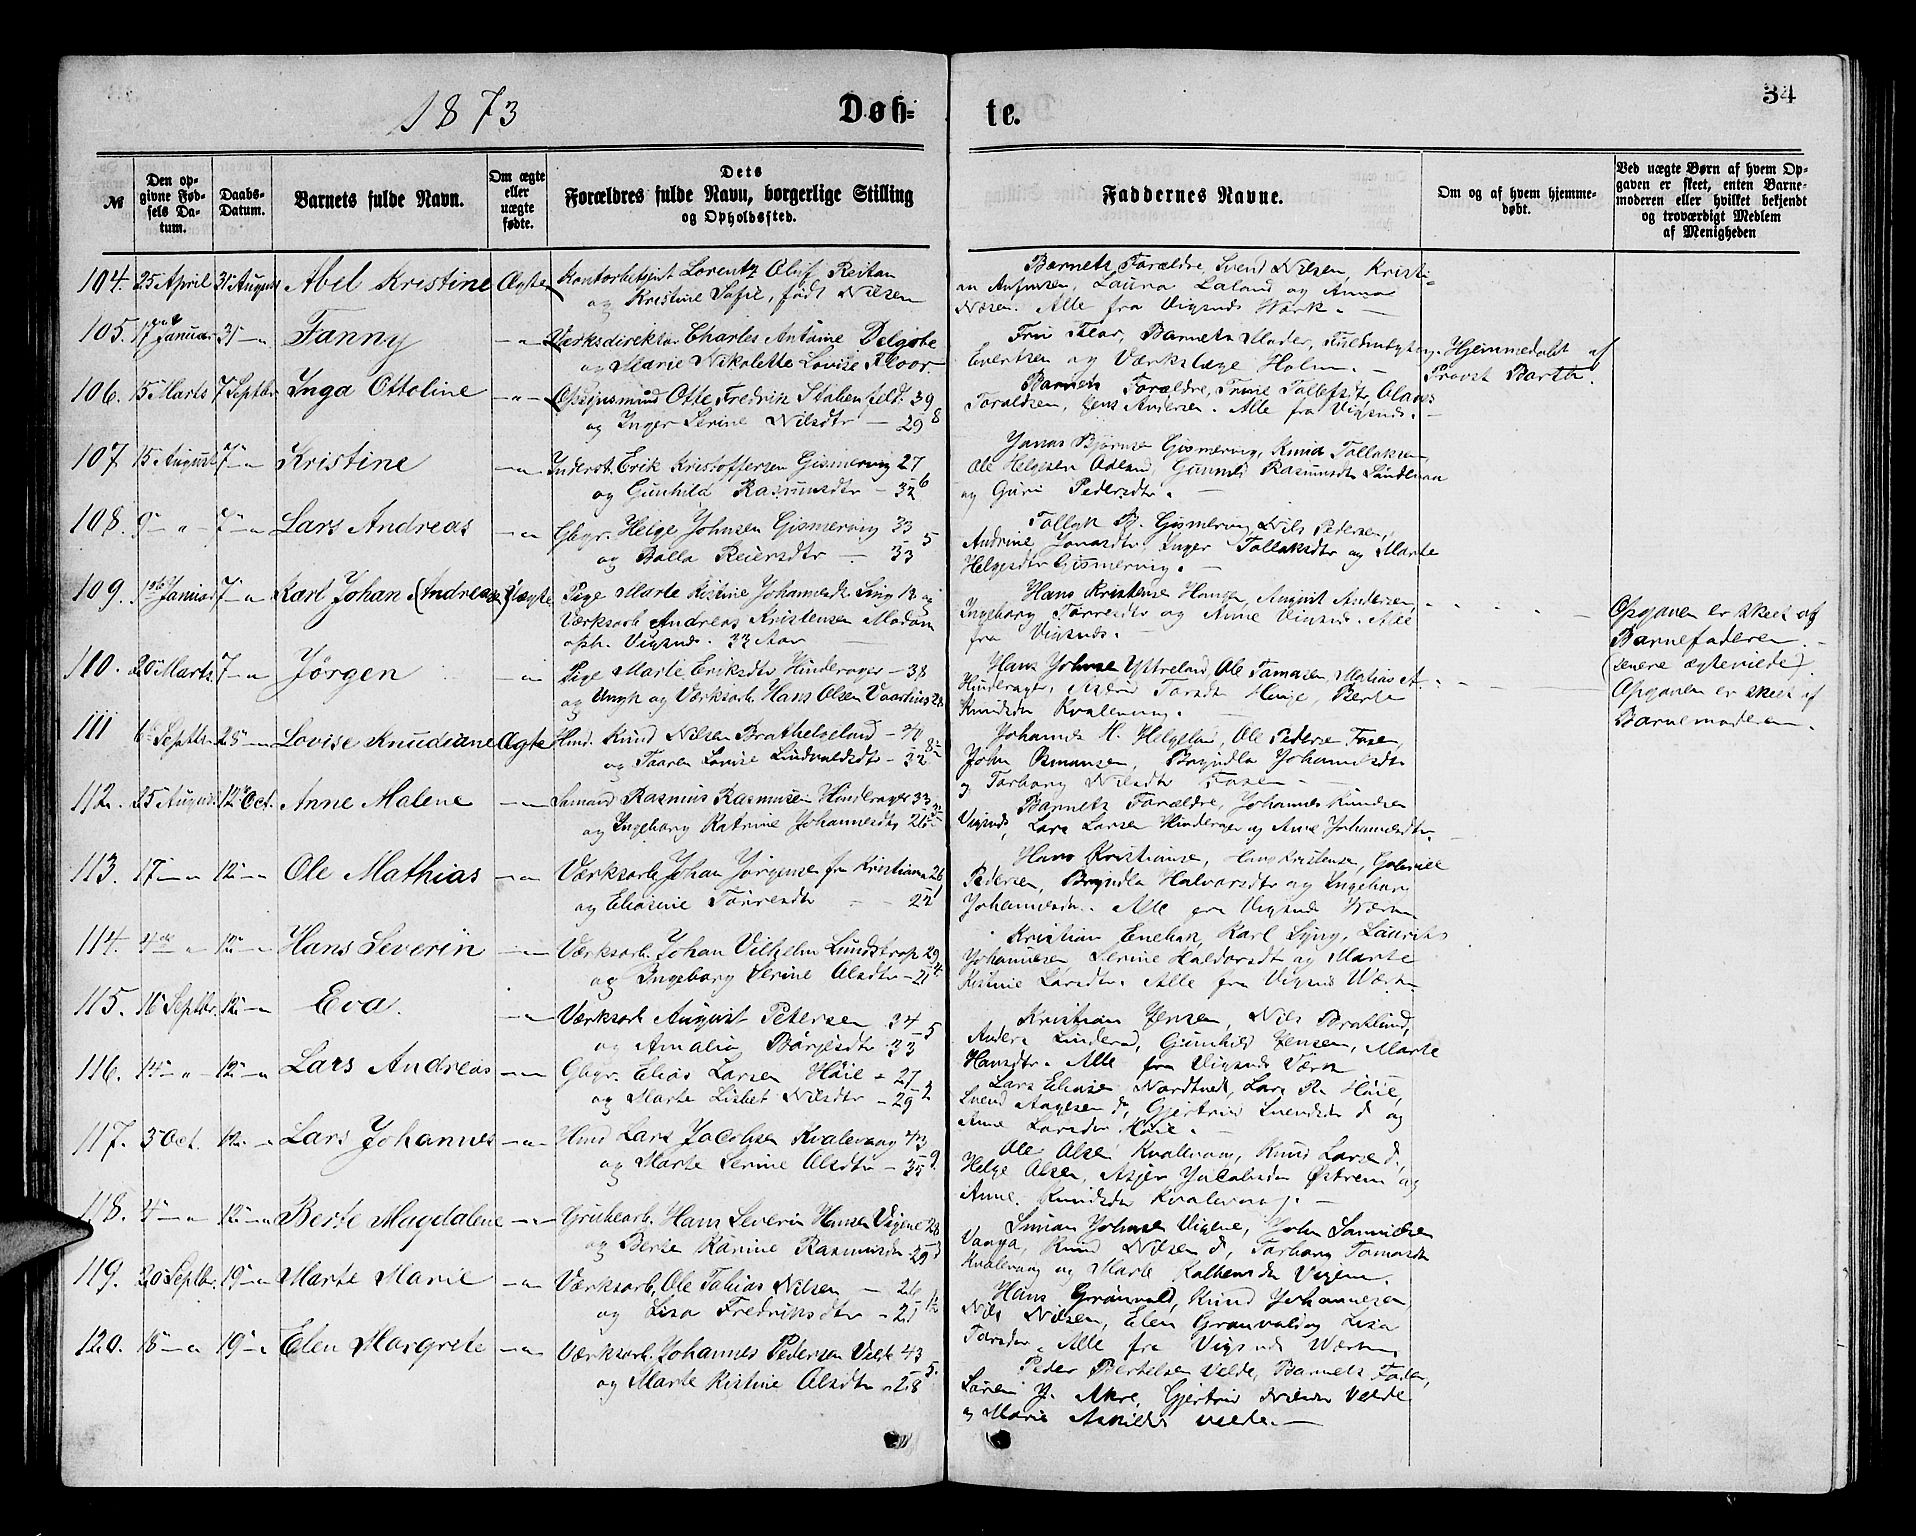 1873
Døb=
te.
34
№
Den op-
givne Fød-
sels Da-
tum.
Daabs-
Datum.
Barnets fulde Navn.
Om ægte
eller
uægte
fødte.
Dets
Forældres fulde Navn, borgerlige Stilling
og Opholdssted.
Faddernes Navne.
Om og af hvem hjemme-
døbt.
Ved uægte Børn af hvem Op-
gaven er skeet, enten Barne-
moderen eller hvilket bekjendt
og troværdigt Medlem
af Menigheden
104. 25 April 31 August Abel Kristine Ægte Kontorbetjent Lorentz Oluf Reitan
og Kristine Sofie, født Nilsen
Barnets Forældre, Svend Nilsen, Kristi-
an Laura Laland og Anna
Alle fra Vigsnds Værk. —
105. 17 Januar 31 — " Fanny — " Værksdirektør Charles Antoine Delgobe
og Marie Nikolette Lovise Floor
Fru Floor, Barnets Moder,
Evertsen og Værkslæge Holm. —
Hjemmedøbt af
Provst Barth.
106. 15 Marts 7 Septbr Inga Ottoline — " — Opsynsmand Otto Fredrik Stahlenfeldt 39
og Inger Serine Nilsdtr — 29 8
Barnets Forældre, Trine Tollefsdtr, Olaves
Toraldsen, Jens Andersen. Alle fra Vigsnds. —
107 15 August 7 — " Kristine — " Inderst. Erik Kristoffersen Gismervig 27
og Gunhild Rasmusdtr — 32 6
Jonas Bjørnsen Gismervig, Knud Tollaksen,
Ole Helgesen Ådland, Gunnild Rasmusdtr
og Guri Pedersdtr. —
108. 9 — " — 7 — " Lars Andreas — " Gbgr. Helge Johnsen Gismervig 33
og Balla Reiersdtr — 33 5
Tollak B. Gismervig, Nils Pedersen,
Andrine Jonasdtr, Inger Tollaksdtr og Marte
Helgesdtr Gismervig. —
109. Januar 7 — " Karl Johan (Andreasen) Uægte Pige Marte Kistine Johannesdtr
Værksarb Andreas Kristensen
oph. Vigsnds. 33 Aar
Hans Kristense August Andersen,
Ingeborg Torresdtr og Anne Vigsnds. Alle
fra Vigsnds. —
Opgaven er skeet af
Barnefaderen. —
(senere ægteviede)
110. 20 Marts 7 — " Jørgen — " Pige Marte Eriksdtr Hinderager — 38
og Ungk og Værksarb Hans Olsen 28
Hans Johnsen Yttreland, Ole Tomasen, Matias A.
Hinderager, Torsdtr Berte
Knudsdtr Kvalevaag. —
Opgaven er skeet af
Barnemoderen.
111 6 Septbr 25 — " Lovise Knudiane Ægte Hmd. Knud Nilsen Brathelseland — 40
og Taaren Lovise Lindvaldsdtr — 32 8
Johannes H. Helgeland, Ole Pedersen Fosen,
John Osmunsen, Bryndla Johannesdtr
og Torborg Nilsdtr Fosen —
112. 25 August 12 Oct. Anne Malene — " Rasmus Rasmusen Hinderager 33
og Ingeborg Katrine Johannesdtr 26
Barnets Forældre, Johannes Knudsen
Vigsnds, Lars Larsen Hinderager og Anne Johannesdtr.
113. 17 — " 12 — " Ole Mathias — " Værksarb Johan Jørgensen fra Kristiania 26
og Eliasine Torresdtr — 22 1
Hans Kristiansen, Hans Kristensen, Gabriel
Pedersen, Bryndla Halvorsdtr og Ingeborg
Johannesdtr. Alle fra Vigsnds Værk
114. 4de " 12 — " Hans Severin — " Værksarb. Johan Vilhelm Lundstrøp 29
og Ingeborg Serine Olsdtr — 21 4
Kristian Karl Laurits
Johannesen, Serine Haldorsdtr og Marte
Kistine Larsdtr. Alle fra Vigsnds Værk
115. 16 Septbr. 12 — " Eva. — " Værksarb August Petersen 34
og Amalia 33 5
Kristian Jensen, Nils
Anders Gunhild Jensen, Marte
Hansdtr. Alle fra Vigsnds Værk
116. 14 — " 12 — " Lars Andreas — " Gbgr. Elias Larsen Høie — 27
og Marte Lisbet Nilsdtr — 29 2
Lars Eliasen Nordtveit, Lars R. Høie,
Svend Aagesen d, Gjertrud Svendsdtr d og
Anne Larsdtr Høie. —
117. 3 Oct. 12 — " Lars Johannes — " Hmd Lars Jacobsen Kvalevaag 43
og Marte Serine Olsdtr — 35 9
Ole Olsen Kvalevaag, Knud Larsen d,
Helge Olsen, Asjer Jakobsdtr Østrem og
Anne Knudsdtr Kvalevaag. —
118. 4 — " 12 — " Berte Magdalene — " Grubearb. Hans Severin Hansen Vigene 28
og Berte Karine Rasmusdtr 29
Simon Johnsen Vigene, John Samuelsen
Vaaga, Knud Nilsen d, Torborg Tomasdtr
Kvalevaag og Marte Vigene.
119. 20 Septbr. 19 — " Marte Marie — " Værksarb, Ole Tobias Nilsen — 26
og Lisa Fredriksdtr — 25
Hans Grønvold, Knud Johannesen,
Nils Nilsen, Elen Grønvold og Lisa
Torsdtr. Alle fra Vigsnds Værk
120. 18 — " 19 — " Elen Margrete — " Værksarb. Johannes Pedersen Velde 43
og Marte Kistine Olsdtr — 28 5.
Peder Bertelsen Velde, Barnets Fader,
Søren J. Akre, Gjertrud Nilsdtr Velde
og Marie Velde. —